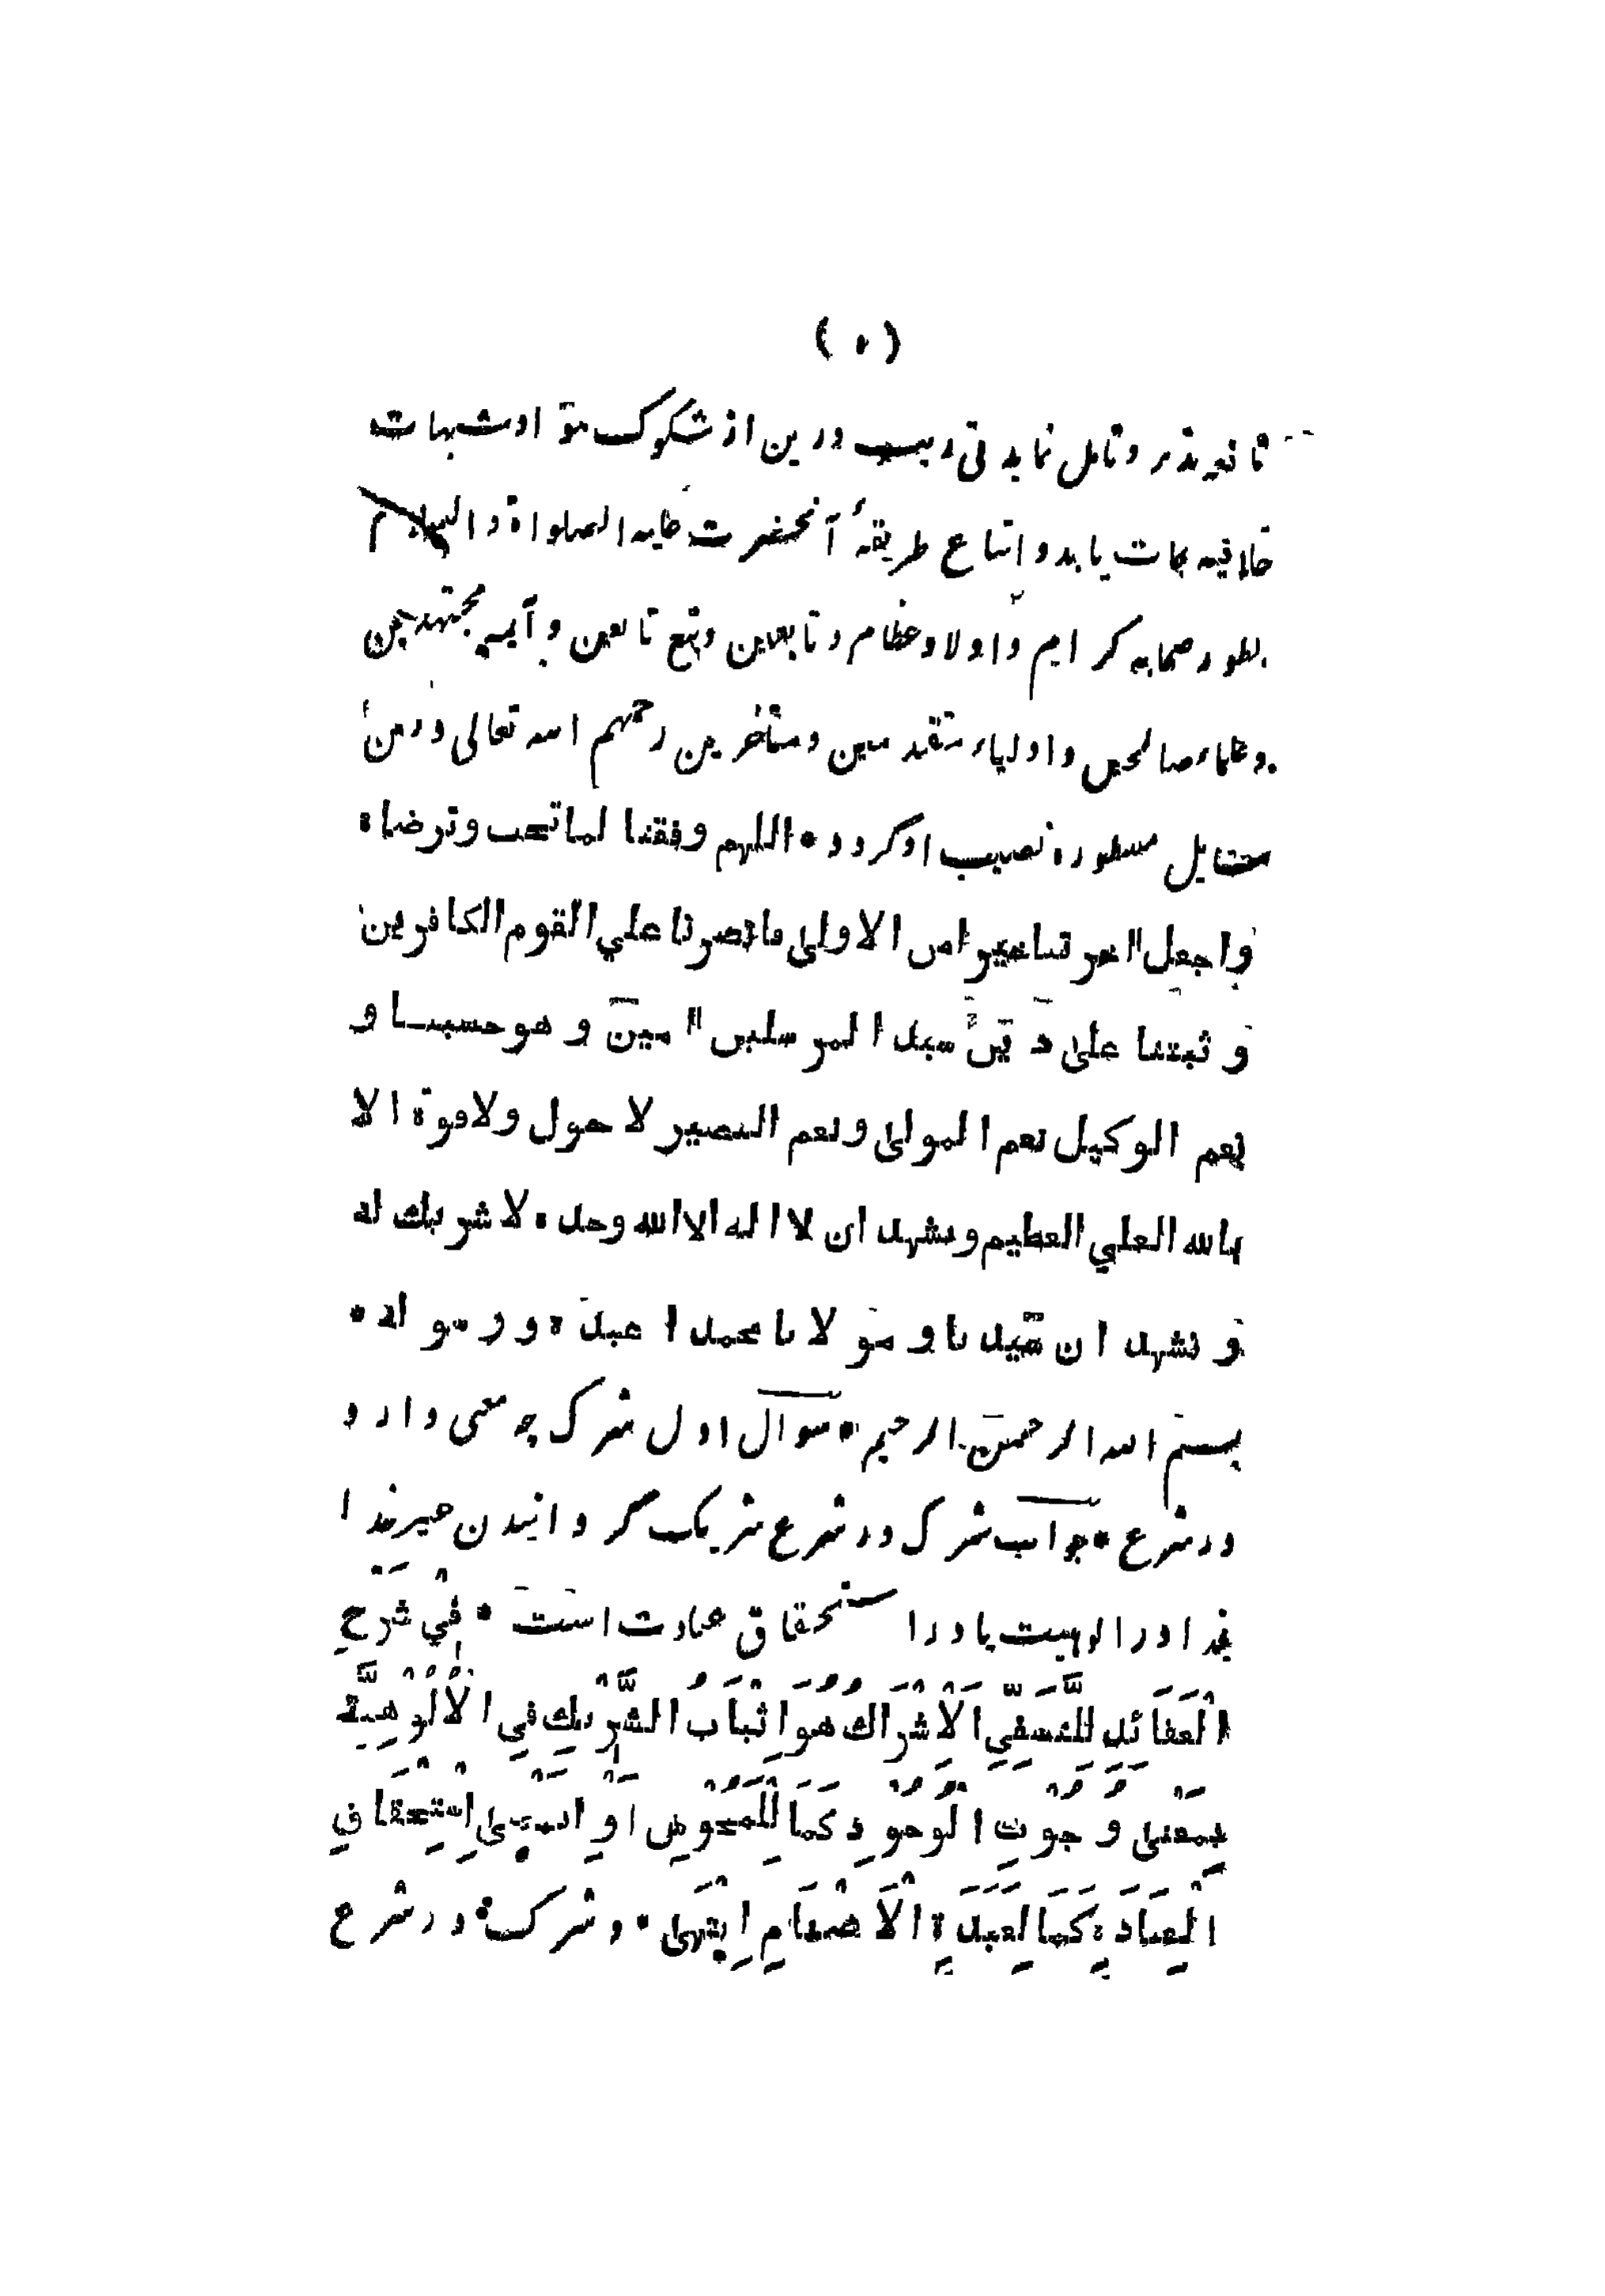 تا نعم بتدبر و تامل نماید بی ریب درین از شکوک مواد شبهات
خلافیه نجات یابد و اتباع طریقهٔ آنحضرت علیه الصلواة و السلام
بطور صحابه کرام و اولاد عظام و تابعین و تبع تابعین و آیمه مجتهدین
و علماء صالحین و اولیاء متقدمین و متأخرین رحمهم الله تعالی درین
مسایل مسطوره نصیب او گردد * اللهم وفقنا لما تحب وترضاه
واجعل آخرتنا خيرا من الاولى وانصرنا علي القوم الكافرين
و ثبتنا على دين سيد المرسلين آمين و هو حسبنا و
نعم الوكيل نعم المولى ونعم النصير لا حول ولا قوة الا
بالله العلي العظيم ونشهد ان لا اله الا الله وحده لا شريك له
و نشهد ان سيدنا و مولانا محمدا عبده و رسوله *
بسم الله الرحمن الرحیم * سوال اول شرک چه معنی دارد
در شرع * جواب شرک در شرع شریک گردانیدن غیر خدا
بخدا در الوهیت یا در استحقاق عبادت است * فِيْ شَرْحِ
الْعَقَائِدِ لِلنَّسَفِيِّ اَلْاِشْرَاكُ هُوَ اِثْبَاتُ الشَّرِيْكِ فِي الْاُلُوْهِيَّةِ
بِمَعْنٰى وُجُوْبِ الْوُجُوْدِ كَمَا لِلْمَجُوْسِ اَوْ بِمَعْنٰى اِسْتِحْقَاقِ
الْعِبَادَةِ كَمَا لِعَبَدَةِ الْاَصْنَامِ اِنْتَهٰى * و شرک در شرع